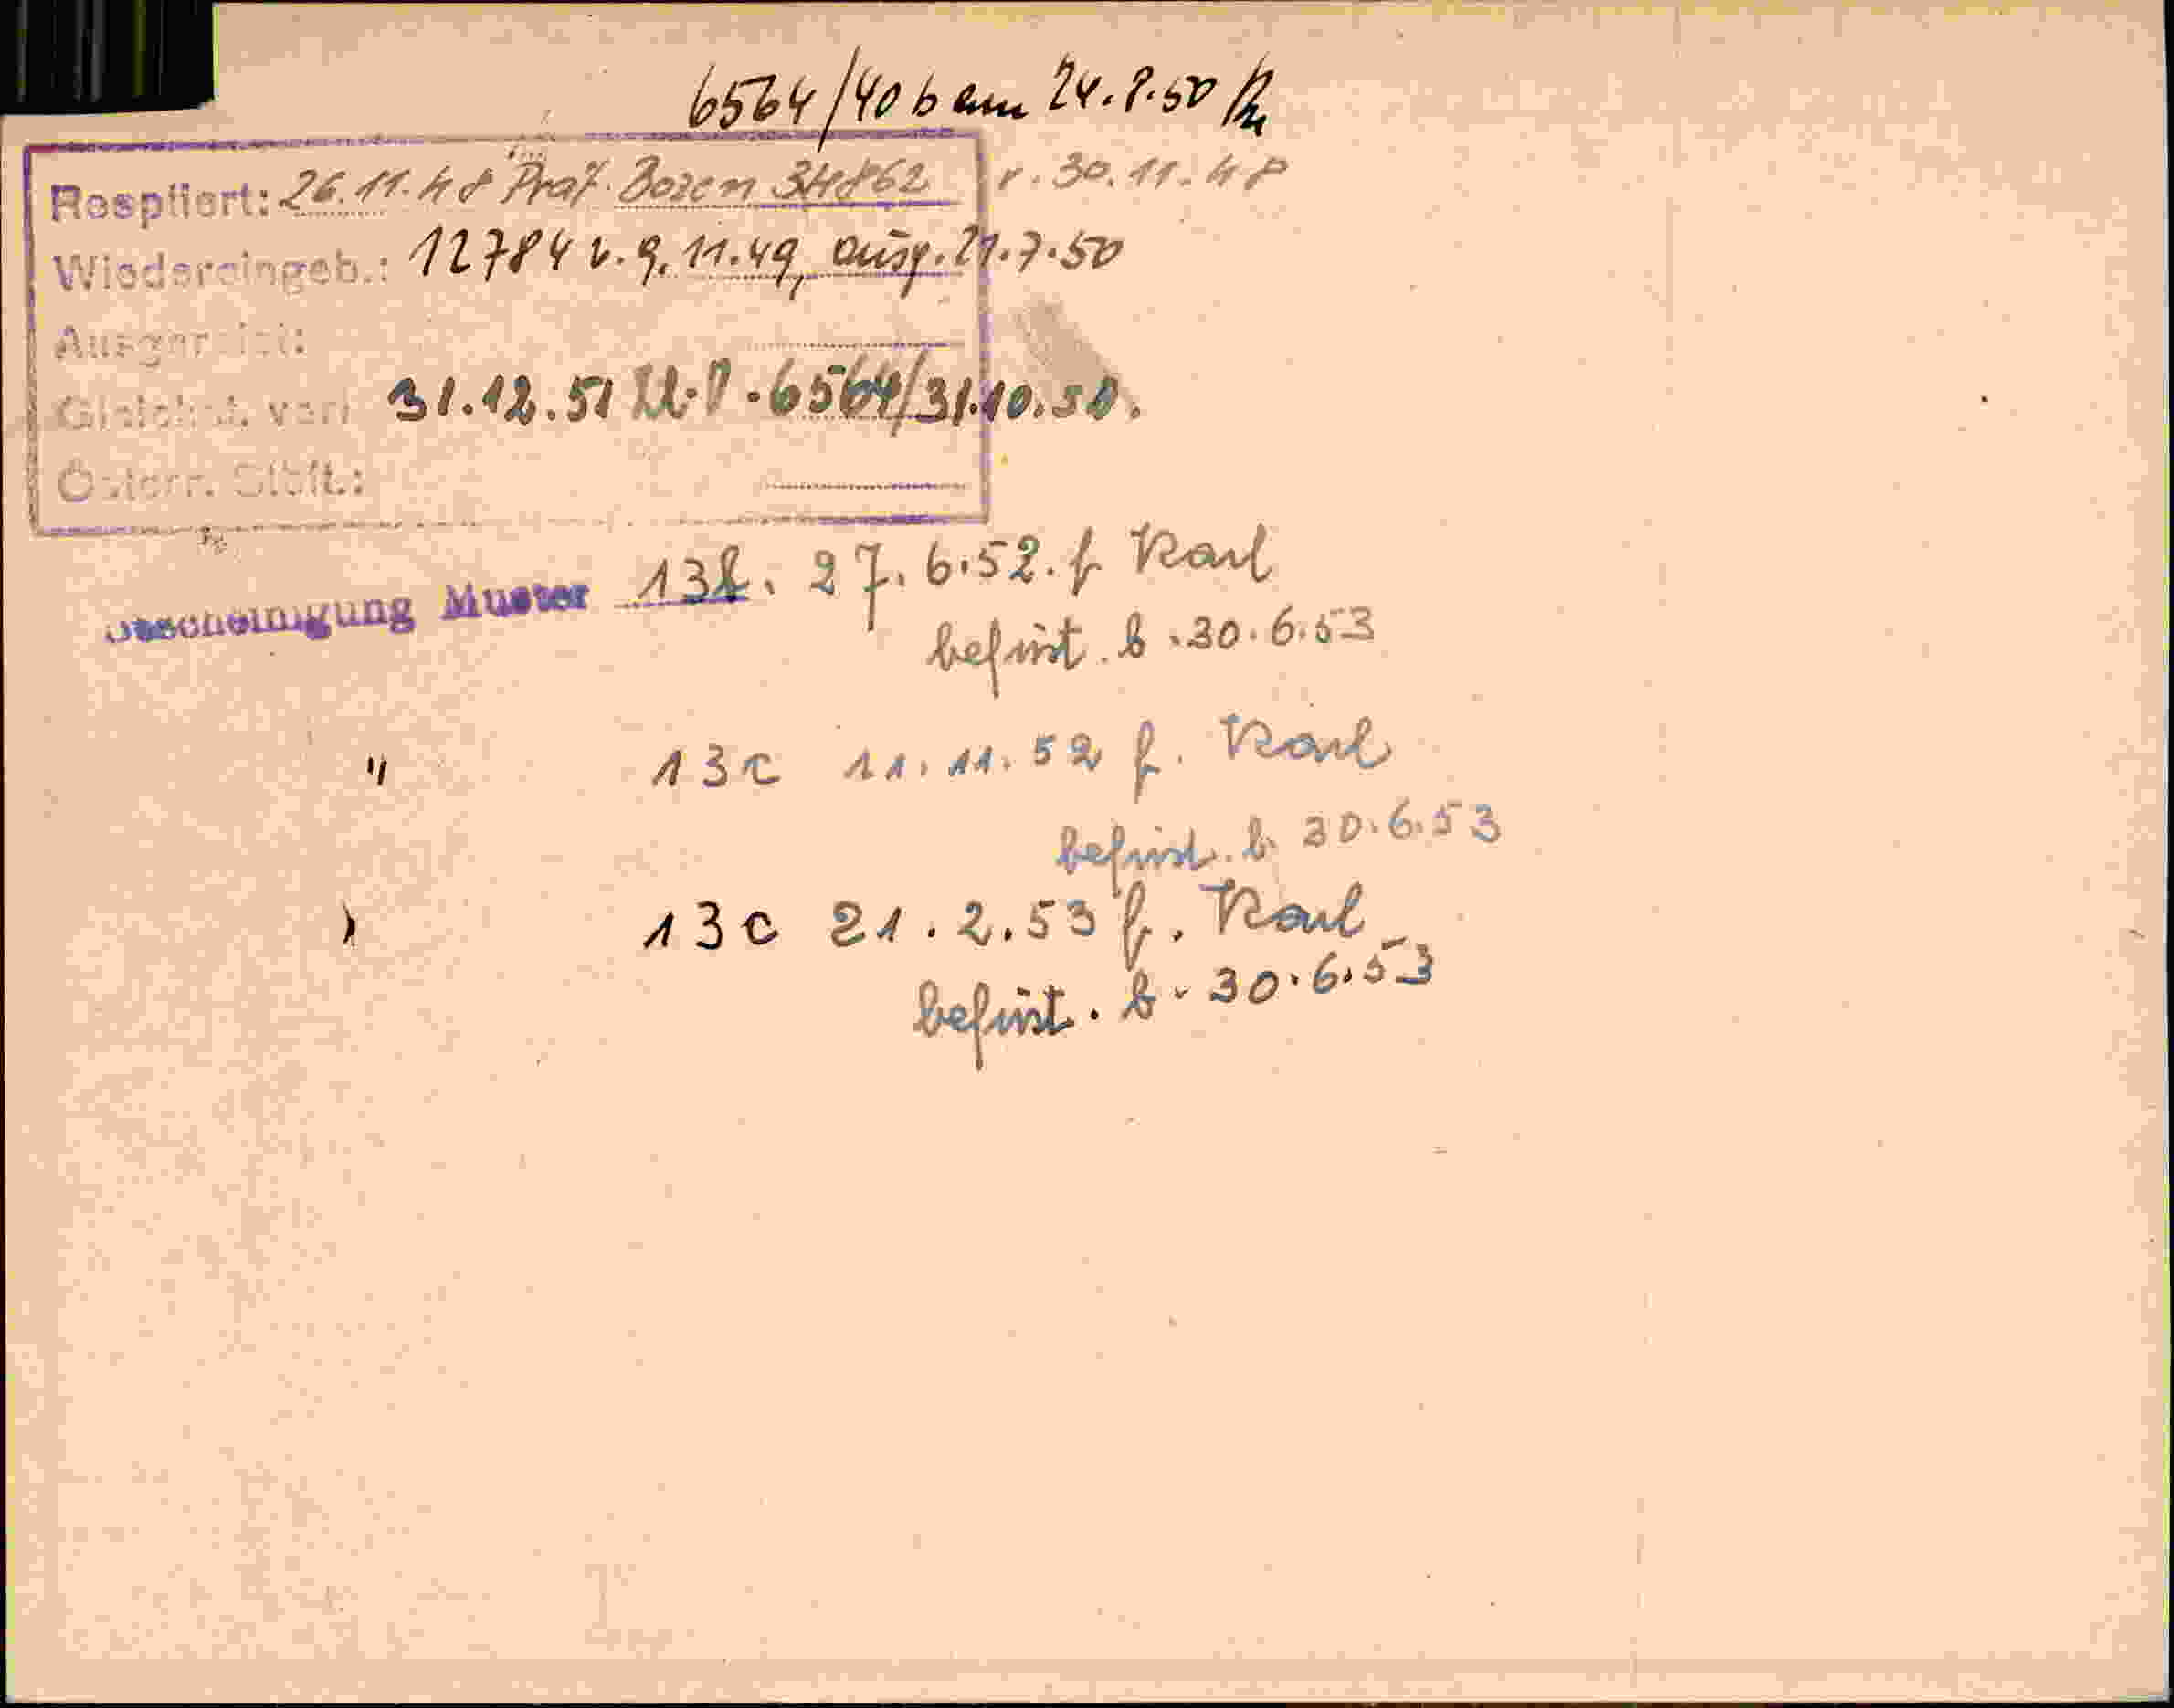 6564/40 b am 24.8.50
Resptiert: 26.11.48 Präf. Bozen 34862 v. 30.11.48
Wiedereingeb.: 12784 v. 9.11.49, ausg. 21.7.50
Ausger
Gleichst. von 31.12.51 6564/31.10.50.
Österr. Stbft.:
Bescheinigung Muster 13 27.6.52. f Karl
befrist. b. 30.6.53
" 13c 11.11.52 f. Karl
befrist. b. 30.6.53
13c 21.2.53 f. Karl
befrist. b. 30.6.53